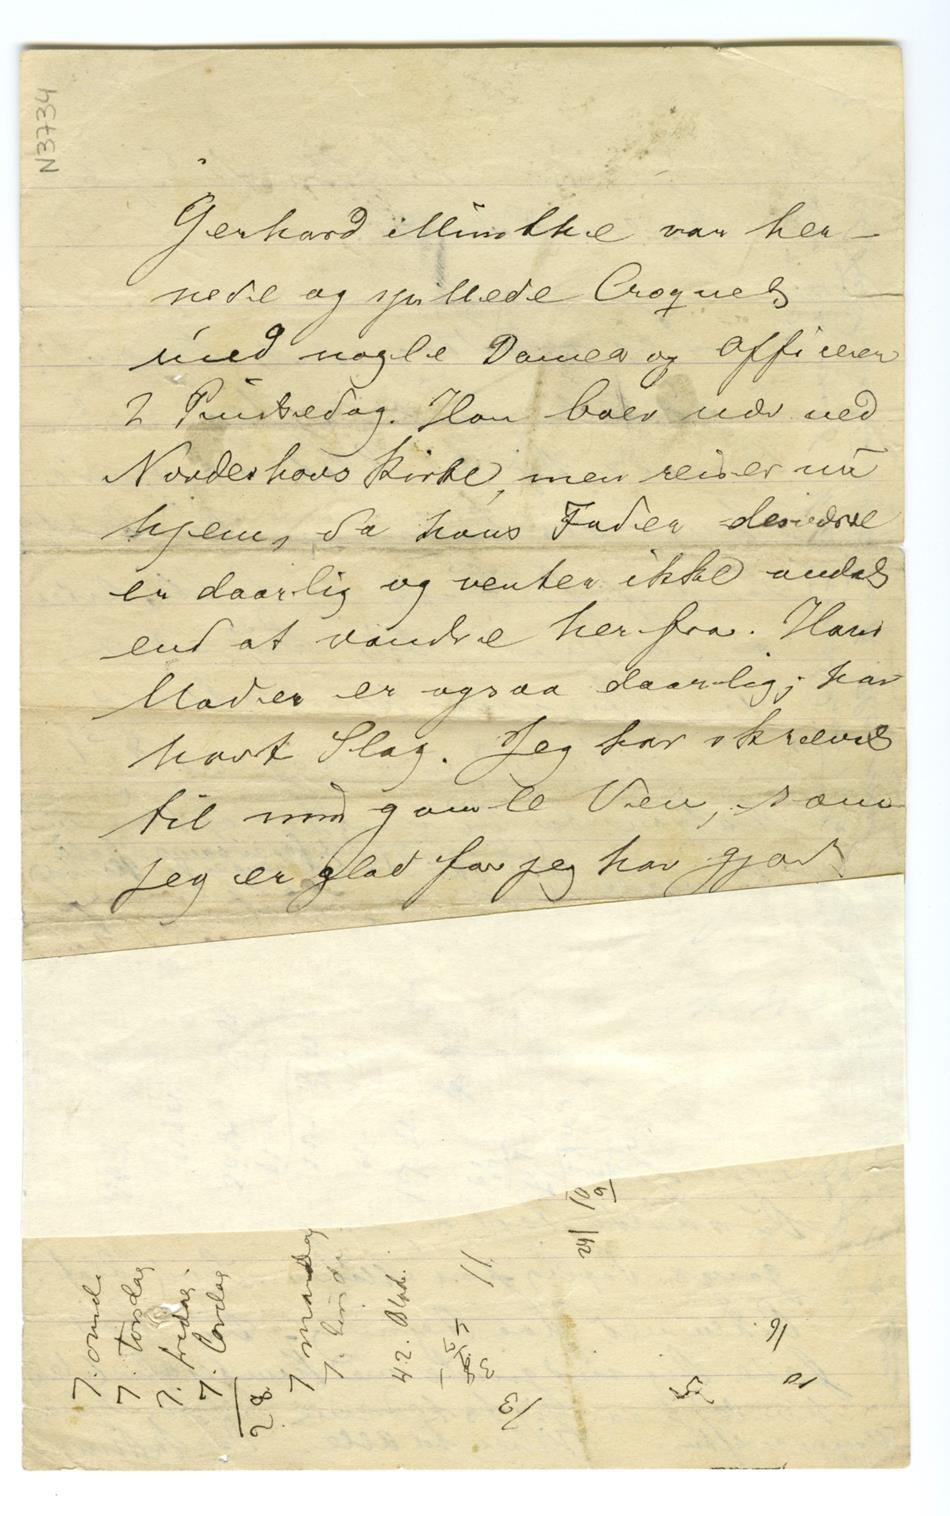 N3734
Gerhard Munthe var her-
nede og spillede Croquet
med nogle Damer og Officerer
2 Pintsedag. Han boer nær ved
Norderhovs Kirke, men reiser nu
hjem, da hans Fader desværre
er daarlig og venter ikke andet
end at vandre herfra. Hans
Moder er ogsaa daarlig; har
havt Slag. Jeg har skrevet
til min gamle Ven, som
jeg er glad for jeg har gjort
7. onsd.
7. Torsdag
7. fredag.
7. Lørdag
28
7 mandag
7.
42.
11
13
24
10
9
5
16
10